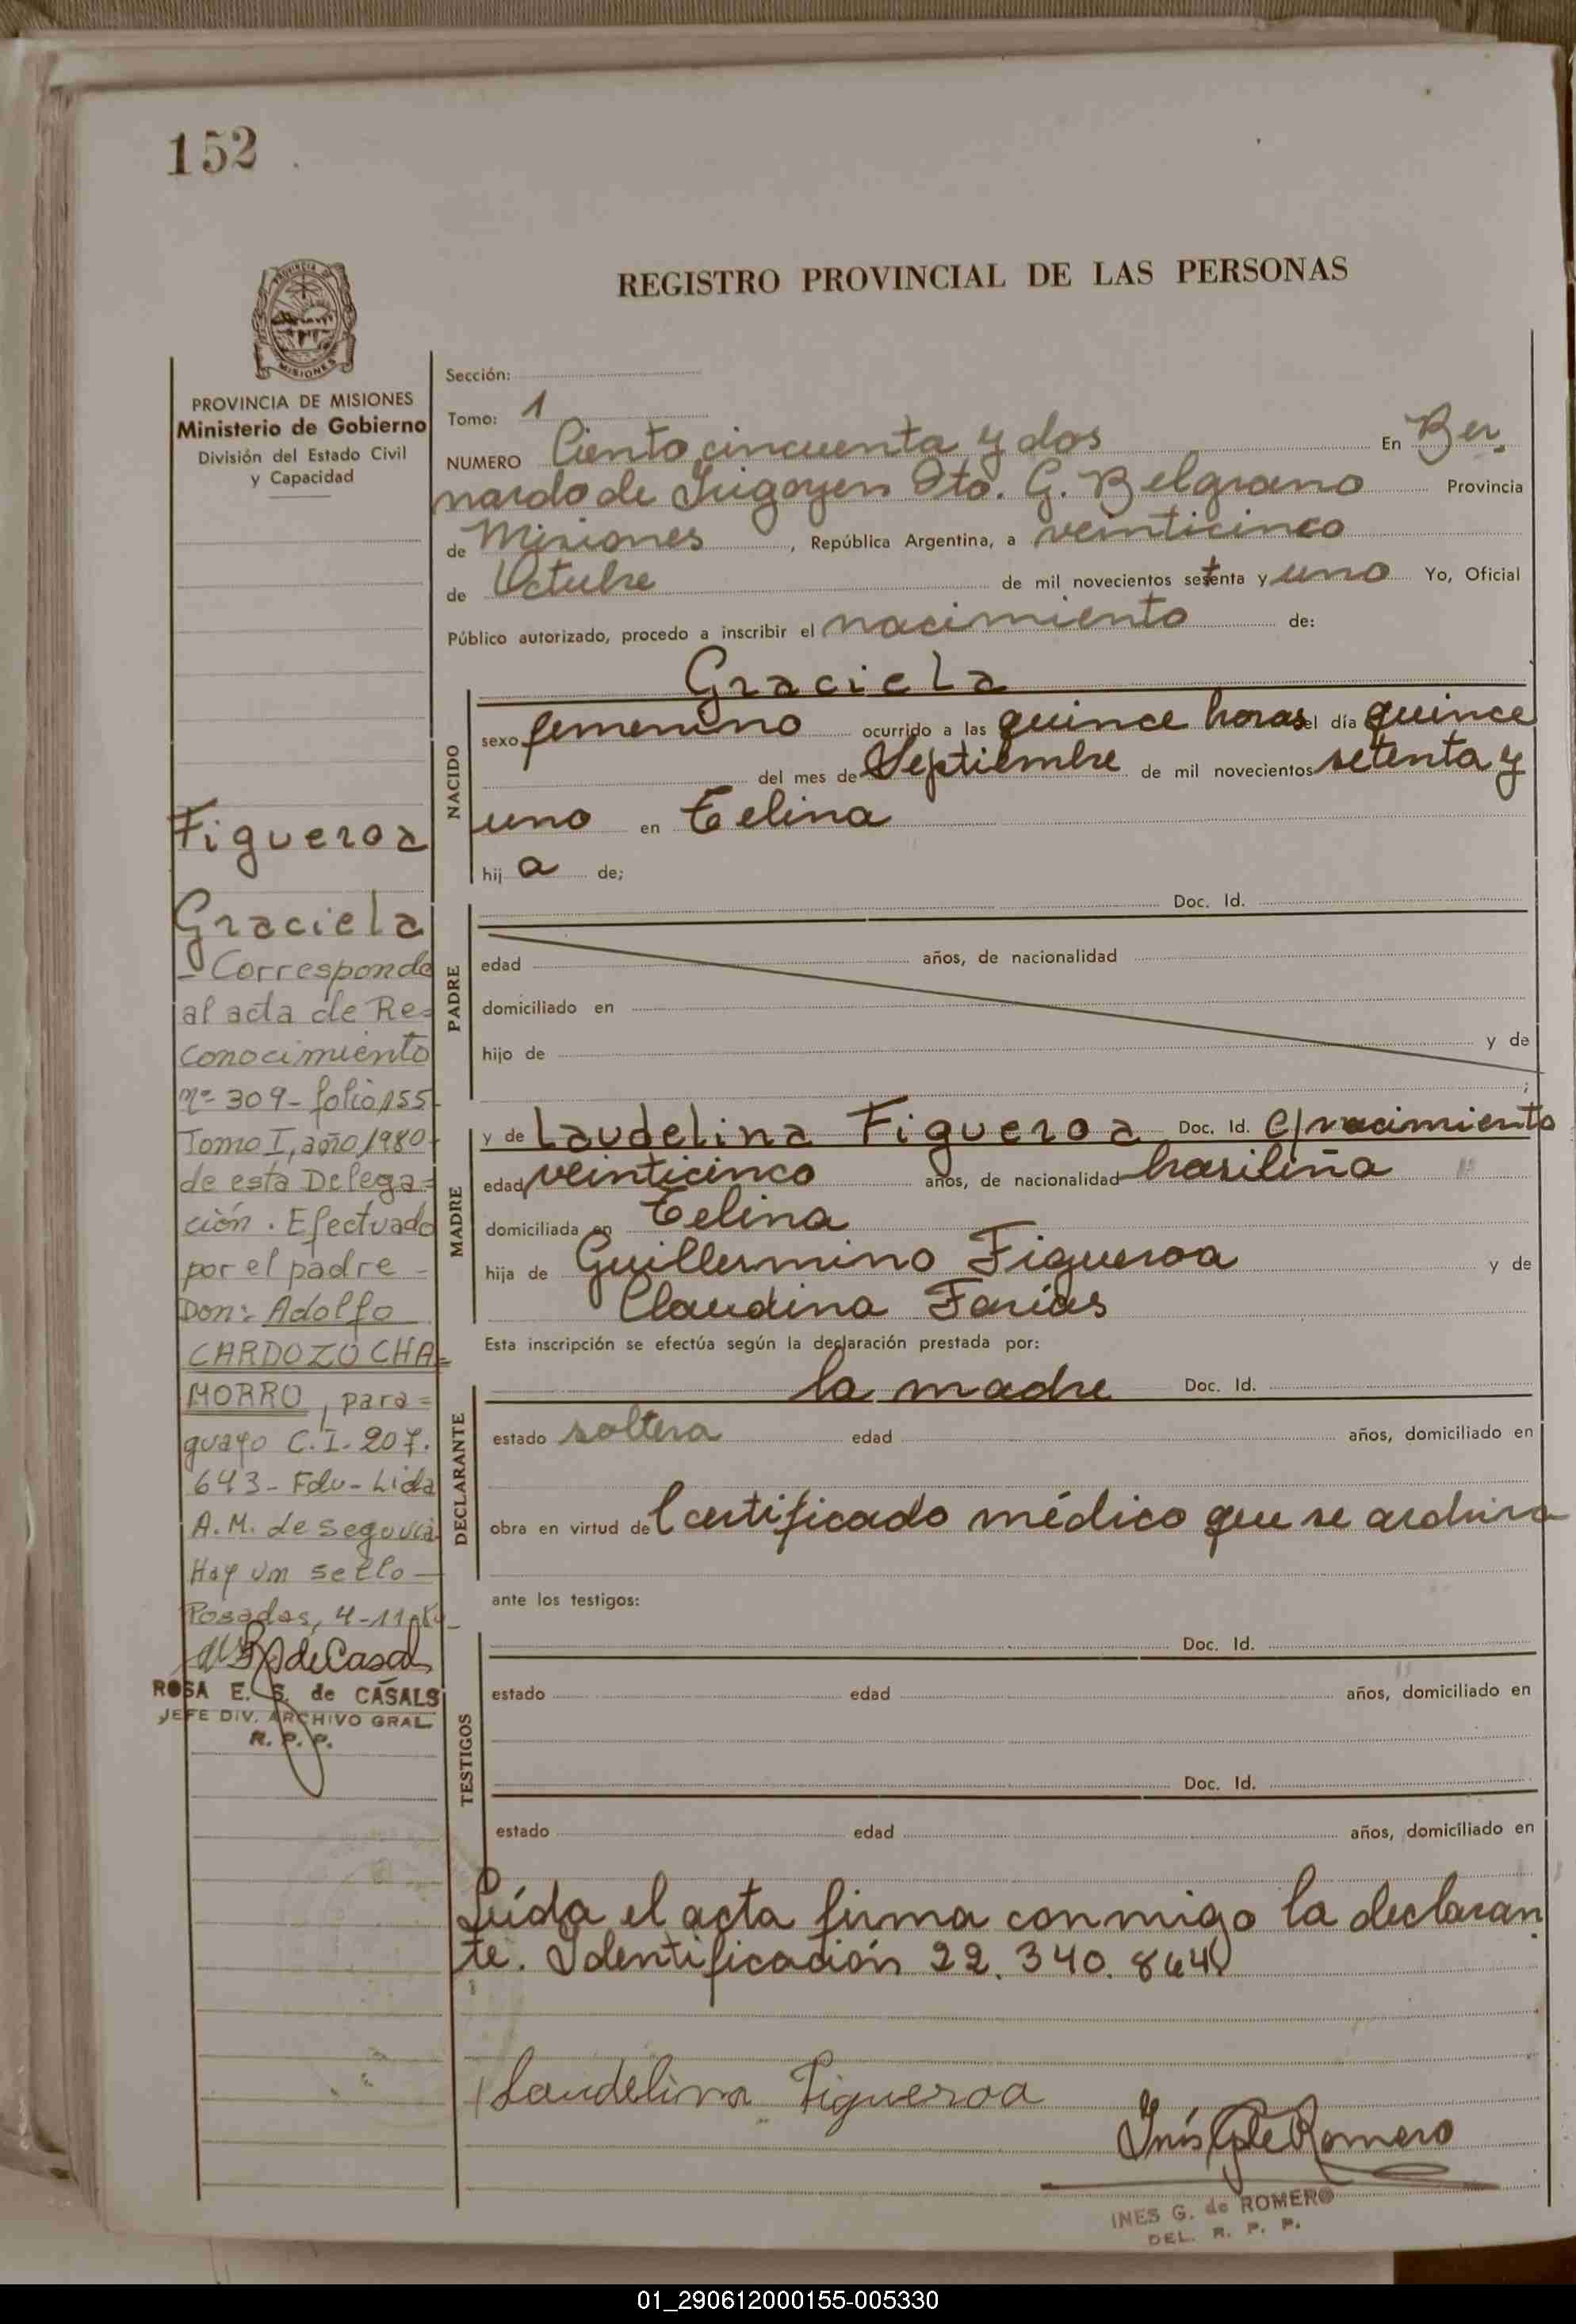 152
REGISTRO PROVINCIAL DE LAS PERSONAS
PROVINCIA DE MISIONES
MISIONES
PROVINCIA DE MISIONES
Ministerio de Gobierno
División del Estado Civil
y Capacidad
Figueroa
Graciela
- Corresponde
al acta de Re=
conocimiento
nº 309 - folio 155-
Tomo I, año 1980-
de esta Delega=
ción. Efectuado
por el padre -
Don: Adolfo
CARDOZO CHA=
MORRO, para=
guayo C.I. 207.
643 - Fdo - Lida
A.M. de Segovia
Hay un sello -
Posadas, 4-11-
ROSA E. S. de CASALS
JEFE DIV. ARCHIVO GRAL.
R. P. P.
Sección:
Tomo: 1
NUMERO Ciento cincuenta y dos En Ber
nardo de Irigoyen Dto. G. Belgrano Provincia
de Misiones, República Argentina, a veinticinco
de Octubre de mil novecientos setenta y uno Yo, Oficial
Público autorizado, procedo a inscribir el nacimiento de:
NACIDO
Graciela
sexo femenino ocurrido a las quince horas el día quince
del mes de Septiembre de mil novecientos setenta y
uno en Celina
hij a de;
PADRE
Doc. Id.
edad años, de nacionalidad
domiciliado en
hijo de y de
;
MADRE
y de Laudelina Figueroa Doc. Id. C/nacimiento
edad veinticinco años, de nacionalidad brasileña
domiciliada en Celina
hija de Guillermino Figueroa y de
Claudina Farias
Esta inscripción se efectúa según la declaración prestada por:
DECLARANTE
la madre Doc. Id.
estado soltera edad años, domiciliado en
obra en virtud del certificado médico que se archiva
ante los testigos:
TESTIGOS
Doc. Id.
estado edad años, domiciliado en
Doc. Id.
estado edad años, domiciliado en
Leída el acta firma conmigo la declaran
te. Identificación 22.340.864
Laudelina Figueroa
Inés G de Romero
INES G. de ROMERO
DEL. R. P. P.
01_290612000155-005330